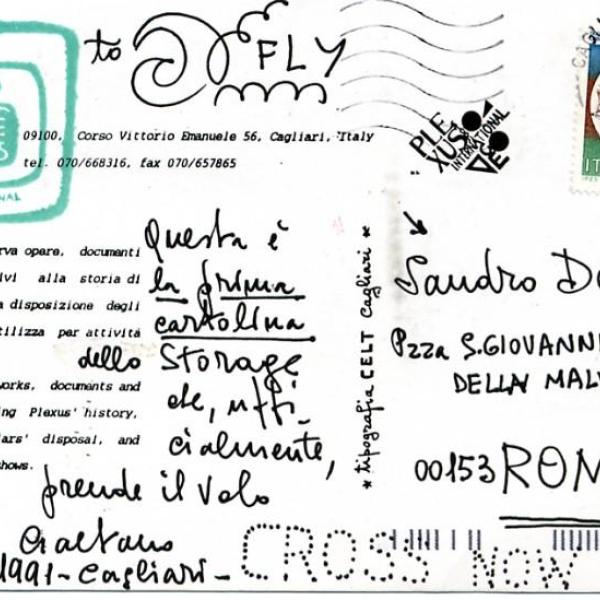 to FLY
09100, Corso Vittorio Emanuele 56, Cagliari, Italy
tel. 070/668316, fax 070/657865
NAL
rva opere, documenti
ivi alla storia di
a disposizione degli
tilizza per attività
works, documents and
ng Plexus' history,
lars' disposal, and
shows.
Questa è
la prima
cartolina
dello Storage
che, uffi-
cialmente,
prende il volo
Gaetano
1991 - Cagliari -
CROSS NOW
* tipografia CELT Cagliari *
PLEXUS
INTERNATIONAL
CAGL
IT
Sandro D
Pzza S.GIOVANNI
DELLA MAL
00153 ROM